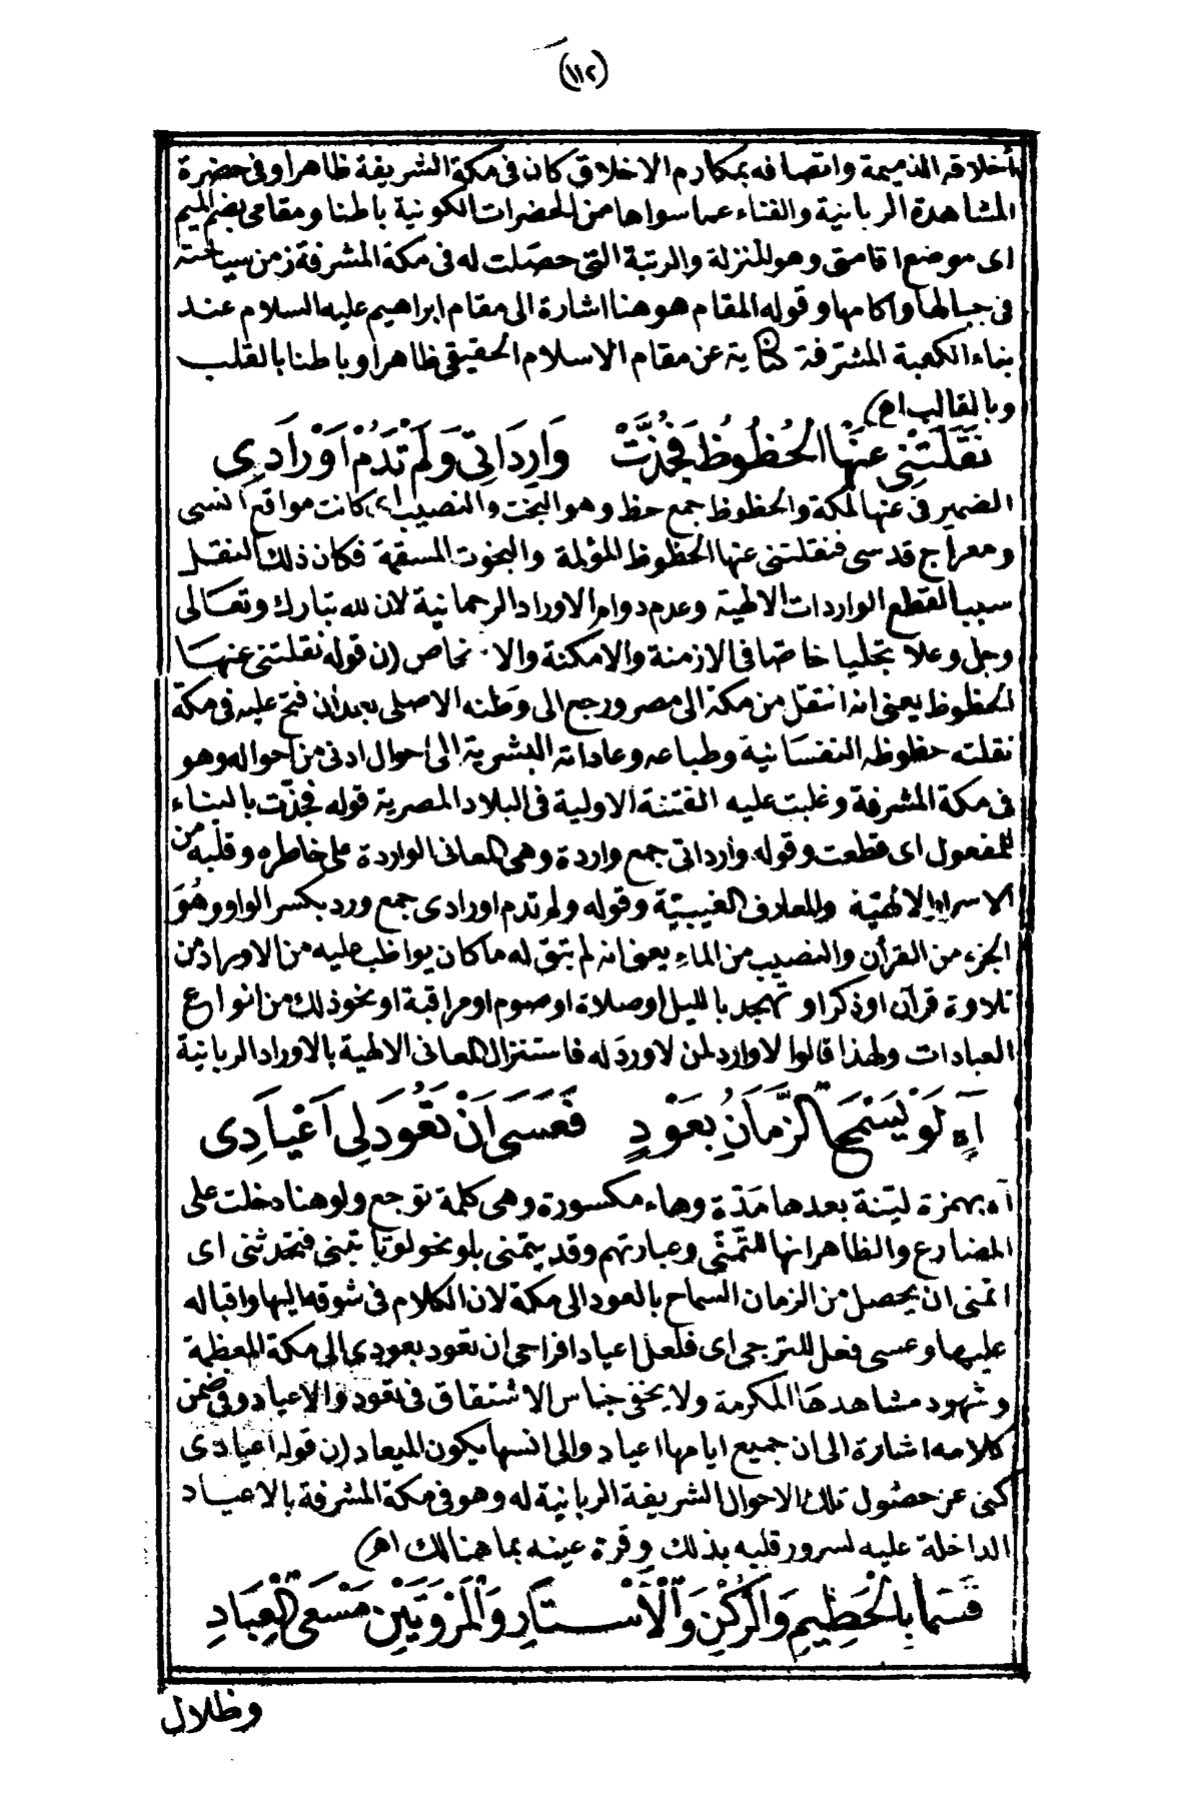 (١١٢)
أخلاقه الذميمة واتصافه بمكارم الاخلاق كان فى مكة الشريفة ظاهرا وفى حضرة
المشاهدة الربانية والفناء عما سواها من الحضرات الكونية باطنا ومقامى بضم الميم
اى موضع اقامتى وهو المنزلة والرتبة التى حصلت له فى مكة المشرفة زمن سياحته
فى جبالها واكامها وقوله المقام هو هنا اشارة الى مقام ابراهيم عليه السلام عند
بناء الكعبة المشرفة كناية عن مقام الاسلام الحقيقى ظاهرا وباطنا بالقلب
وبالقالب اه)
نَقَلَتْنِى عَنْهَا الْحُظُوظُ فَجُذَّتْ وَارِدَاتِى وَلَمْ تَدُمْ اَوْرَادِى
الضمير فى عنها لمكة والحظوظ جمع حظ وهو البخت والنصيب اى كانت مواقع انسى
ومعراج قدسى فنقلتنى عنها الحظوظ المؤلمة والبخوت المسقمة فكان ذلك النقل
سببا لقطع الواردات الالهية وعدم دوام الاوراد الرحمانية لان لله تبارك وتعالى
وجل وعلا تجليا خاصا فى الازمنة والامكنة (ن قوله نقلتنى عنها
الحظوظ يعنى انه انتقل من مكة الى مصر ورجع الى وطنه الاصلى بعد ان فتح عليه فى مكة
نقلته حظوظه النفسانية وطباعه وعاداته البشرية الى احوال ادنى من احواله وهو
فى مكة المشرفة وغلبت عليه الفتنة الاولية فى البلاد المصرية قوله فجذّت بالبناء
للمفعول اى قطعت وقوله وارداتى جمع واردة وهى المعانى الواردة على خاطره وقلبه من
الاسرار الالهيّة والمعارف الغيبيّة وقوله ولم تدم اورادى جمع ورد بكسر الواو وهُوَ
الجزء من القرأن والنصيب من الماءِ يعنى انه لم تبق له ما كان يواظب عليه من الاوراد من
تلاوة قرآن او ذكر او تهجد بالليل او صلاة او صوم او مراقبة او نحو ذلك من انواع
العبادات ولهذا قالوا لا وارد لمن لا ورد له فاستنزال المعانى الالهية بالاوراد الربانية
آهِ لَوْ يَسْمَحُ الزَّمَانُ بِعَوْدٍ فَعَسَى اَنْ تَعُودَ لِى اَعْيَادِى
آه بهمزة ليّنة بعدها مَدّة وهاء مكسورة وهى كلمة توجع ولو هنا دخلت على
المضارع والظاهر انها للتّمنّى وعبارتهم وقد يتمنى بلو نحو لو تأتينى فتحدثنى اى
اتمنى ان يحصل من الزمان السماح بالعود الى مكة لان الكلام فى شوقه اليها واقباله
عليها وعسى فعل للترجى اى فلعل اعياد افراحى ان تعود بعودى الى مكة المعظمة
وشهود مشاهدها المكرمة ولا يخفى جناس الاشتقاق فى تعود والاعياد وفى ضمن
كلامه اشارة الى ان جميع ايامها اعياد والى انسها يكون الميعاد (ن قوله اعيادى
كنى عن حصول تلك الاحوال الشريفة الربانية له وهو فى مكة المشرفة بالاعياد
الداخلة عليه لسرور قلبه بذلك وقرة عينه بما هنالك اه)
قَسَمًا بِالْحَطِيمِ وَالرُّكْنِ وَالْأَسْتَارِ وَالْمَرْوَتَيْنِ مَسْعَى الْعِبَادِ
وظلال